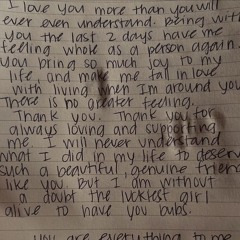 I love you more than you will
ever even understand. Being with
you the last 2 days have me
feeling whole as a person again.
You bring so much joy to my
life, and make me fall in love
with living when I'm around you.
There is no greater feeling.
Thank you. Thank you for
always loving and supporting
me. I will never understand
what I did in my life to deserve
such a beautiful, genuine friend
like you. But I am without
a doubt the luckiest girl
alive to have you bubs.
you are everything to me